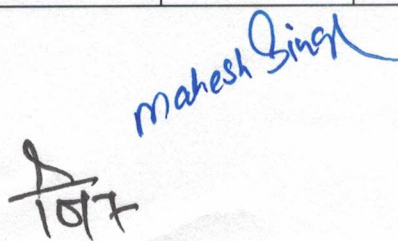 Mahesh Singh